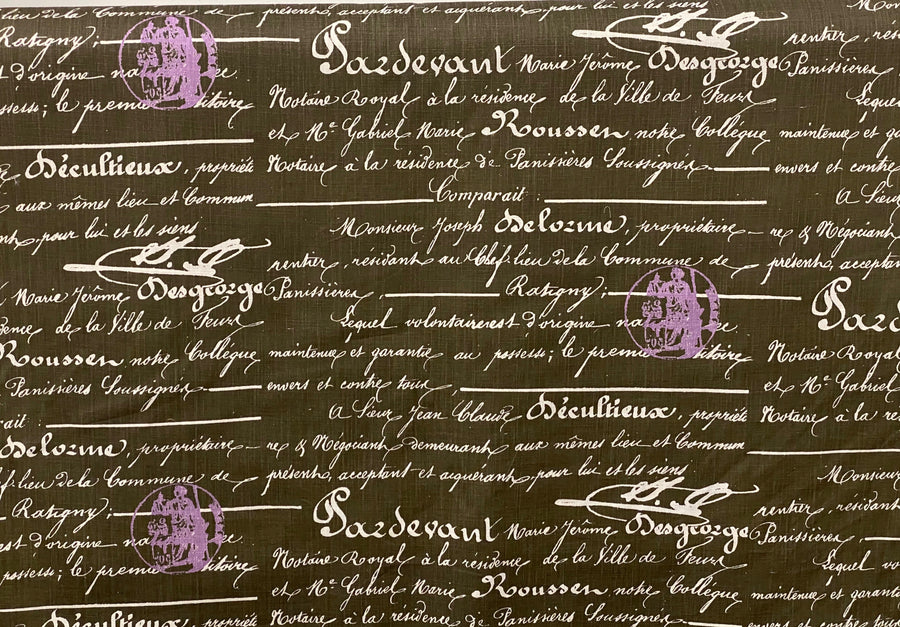 lieu de la Commune de présente, acceptant et aquérant, pour lui et les siens
Ratigny; Pardevant Marie Jerome Desgeorge Panissières,
t d'origine
ssess; le premi titoire Notaire Royal à la résidence de la Ville de Feurs Lequel
et Me Gabriel Marie Roussen notre Collégue maintenue et ga
Décultieux, propriété Notaire à la résidence de Panissières Soussignés envers et contre
aux mêmes lieu et Commun Comparait : A Sieur
nt, pour lui et les siens Monsieur Joseph Delorme, propriétaire re & Négociant
rentier, résidant au Chef-lieu de la Commune de présente, acceptan
Marie Jerôme Desgeorge Panissières, Ratigny; Pard
dence de la Ville de Feurs Lequel volontairement d'origine
Roussen notre Collégue maintenue et garantie au possess; le premi titoire Notaire Royal
Panissières Soussignés envers et contre tous, et Me Gabriel
ait : A Sieur Jean Claude Décultieux, propriété Notaire à la ré
Delorme, propriétaire re & Négociant demeurant aux mêmes lieu et Commun
f-lieu de la Commune de présente, acceptant et aquérant, pour lui et les siens Monsieur
Ratigny; Pardevant Marie Jerôme Desgeorge Panissières, rentier, résidant
est d'origine
possess; le premi titoire Notaire Royal à la résidence de la Ville de Feurs Lequel vo
et Me Gabriel Marie Roussen notre Collégue maintenue et garanti
Décultieux, propriété Notaire à la résidence de Panissières Soussignés envers et contre tous